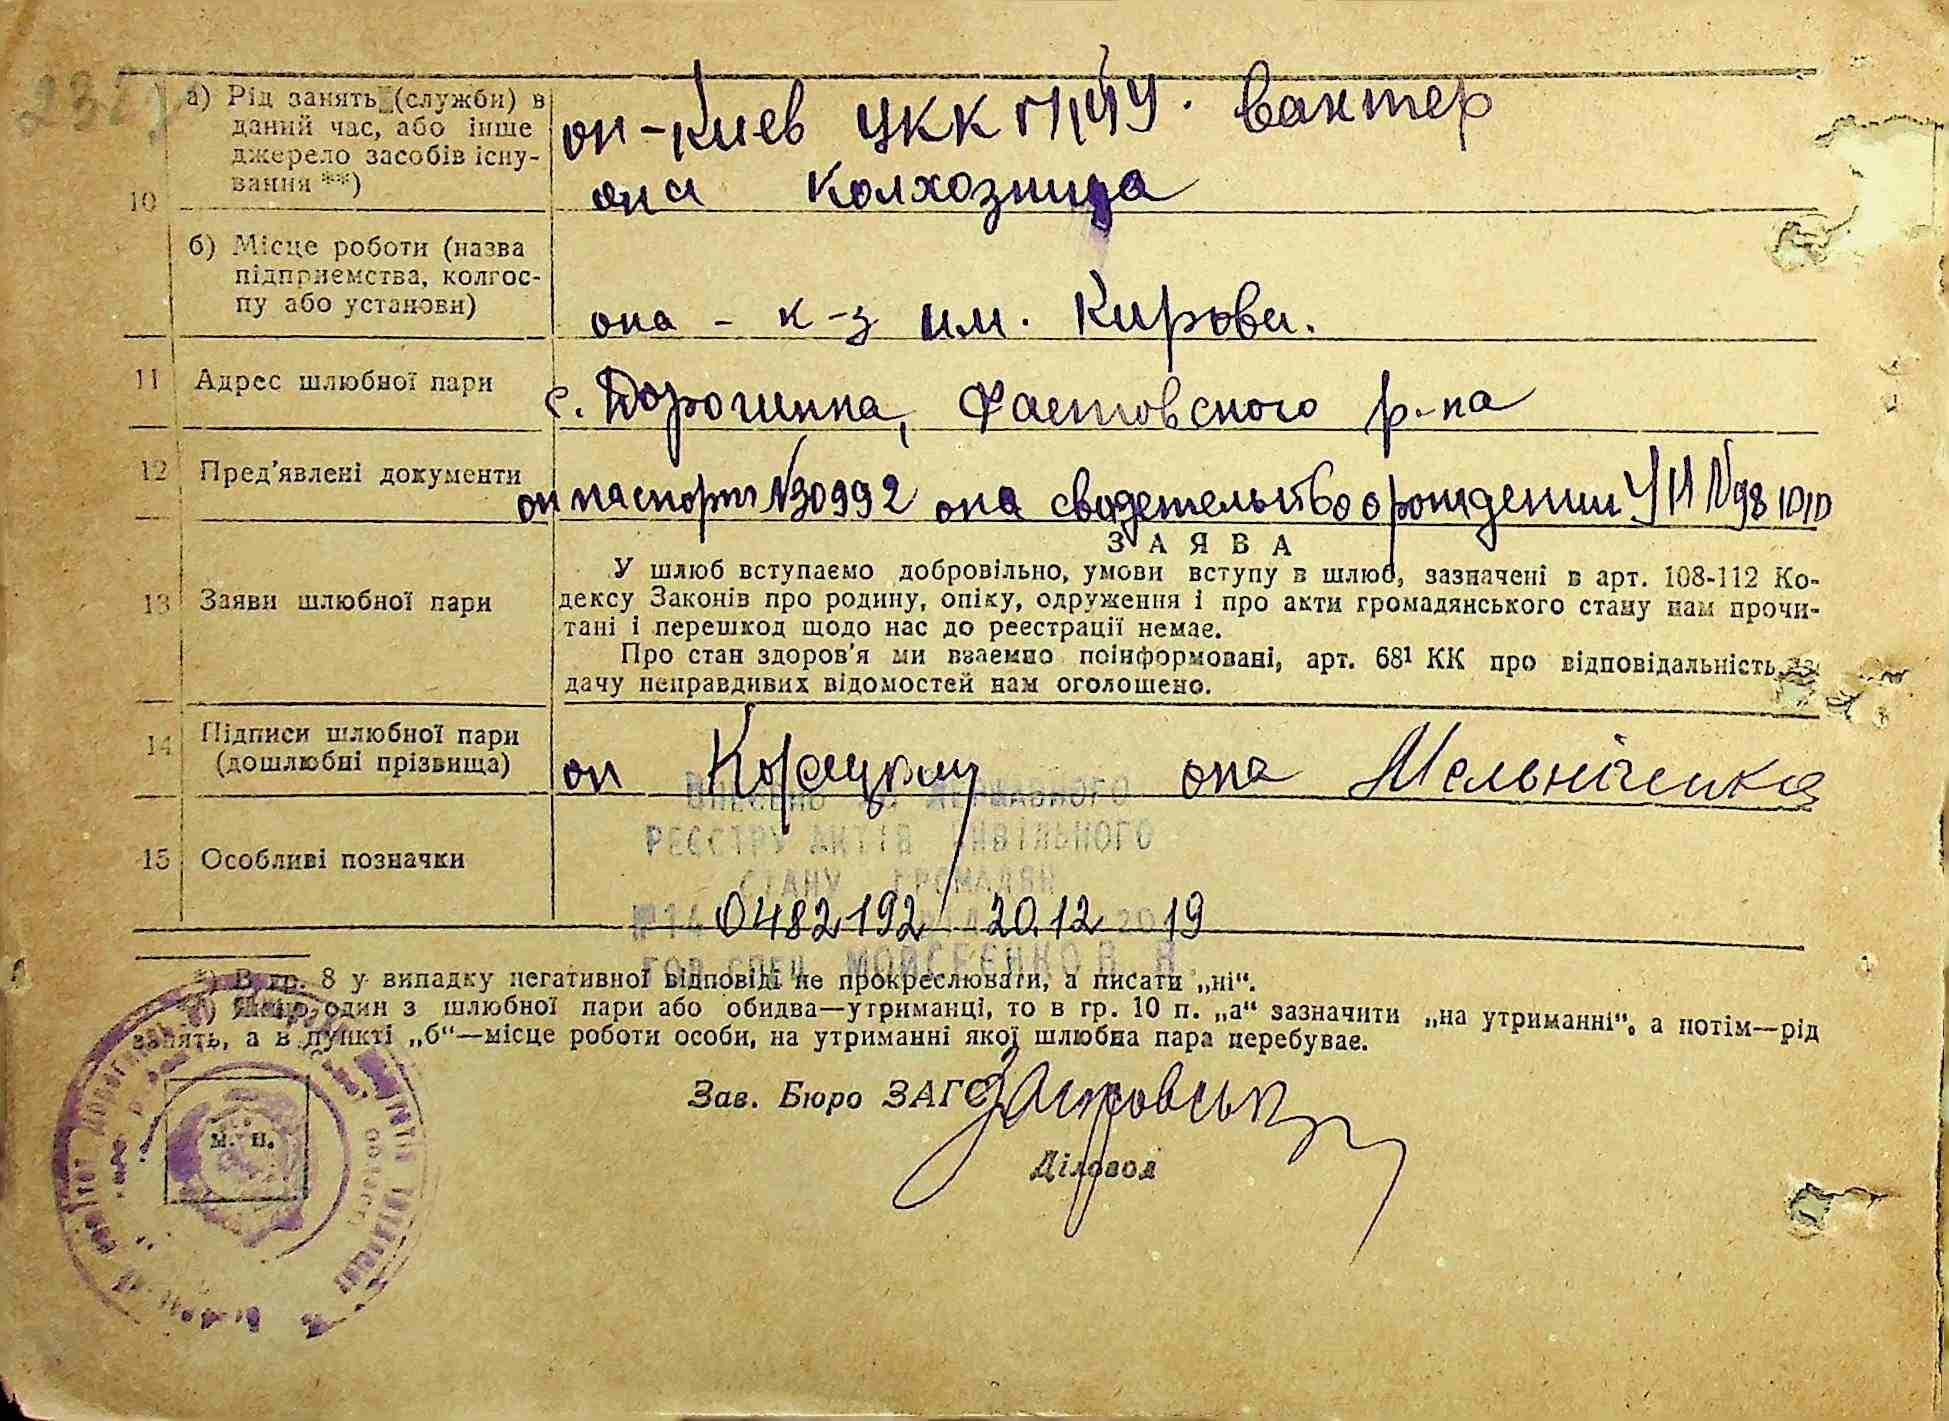 а) Рід занять (служби) в
даний час, або інше
джерело засобів існу-
вання **)
он - Киев УКК вахтер
она колхозница
10
б) Місце роботи (назва
підприемства, колгос-
пу або установи)
она - к-з им. Кирова.
11 Адрес шлюбної пари
с. Дорогинка, Фастовского р-на
12 Пред'явлені документи
он паспорт N30992 она свидетельство о рождении
З А Я В А
13 Заяви шлюбної пари
У шлюб вступаємо добровільно, умови вступу в шлюб, зазначені в арт. 108-112 Ко-
дексу Законів про родину, опіку, одруження і про акти громадянського стану нам прочи-
тані і перешкод щодо нас до реестрації немає.
Про стан здоров'я ми взаємно поінформовані, арт. 68¹ КК про відповідальність за
дачу неправдивих відомостей нам оголошено.
14 Підписи шлюбної пари
(дошлюбні прізвища)
он она Мельніченко
ВНЕСЕНО ДО ДЕРЖАВНОГО
РЕЄСТРУ АКТІВ ЦИВІЛЬНОГО
15 Особливі позначки
СТАНУ ГРОМАДЯН
№14 0482192 ВІД 20.12 2019
ГОЛ.СПЕЦ. МОЙСЕЄНКО
*) В гр. 8 у випадку негативної відповіді не прокреслювати, а писати „ні“.
**) Якщо один з шлюбної пари або обидва—утриманці, то в гр. 10 п. „а“ зазначити „на утриманні“, а потім—рід
занять, а в пункті „б“—місце роботи особи, на утриманні якої шлюбна пара перебуває.
Зав. Бюро ЗАГС
м. п.
Діловод